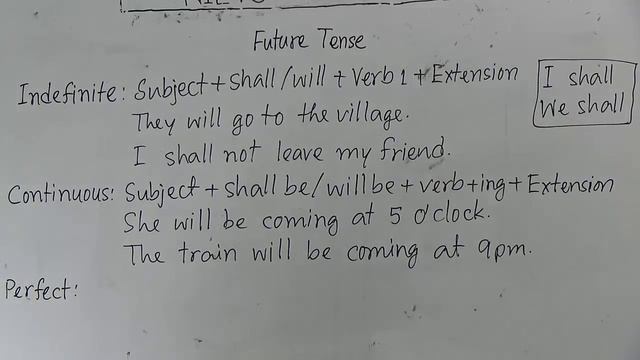 Future Tense
Indefinite: Subject + Shall/will + Verb 1 + Extension
I shall
We shall
They will go to the village.
I shall not leave my friend.
Continuous: Subject + shall be/will be + verb+ing + Extension
She will be coming at 5 o'clock.
The train will be coming at 9pm.
Perfect: